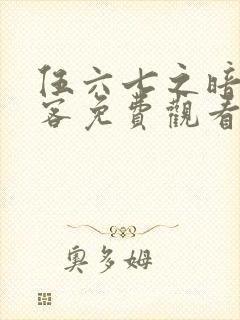 伍六七之暗
客免費觀看
奧多姆